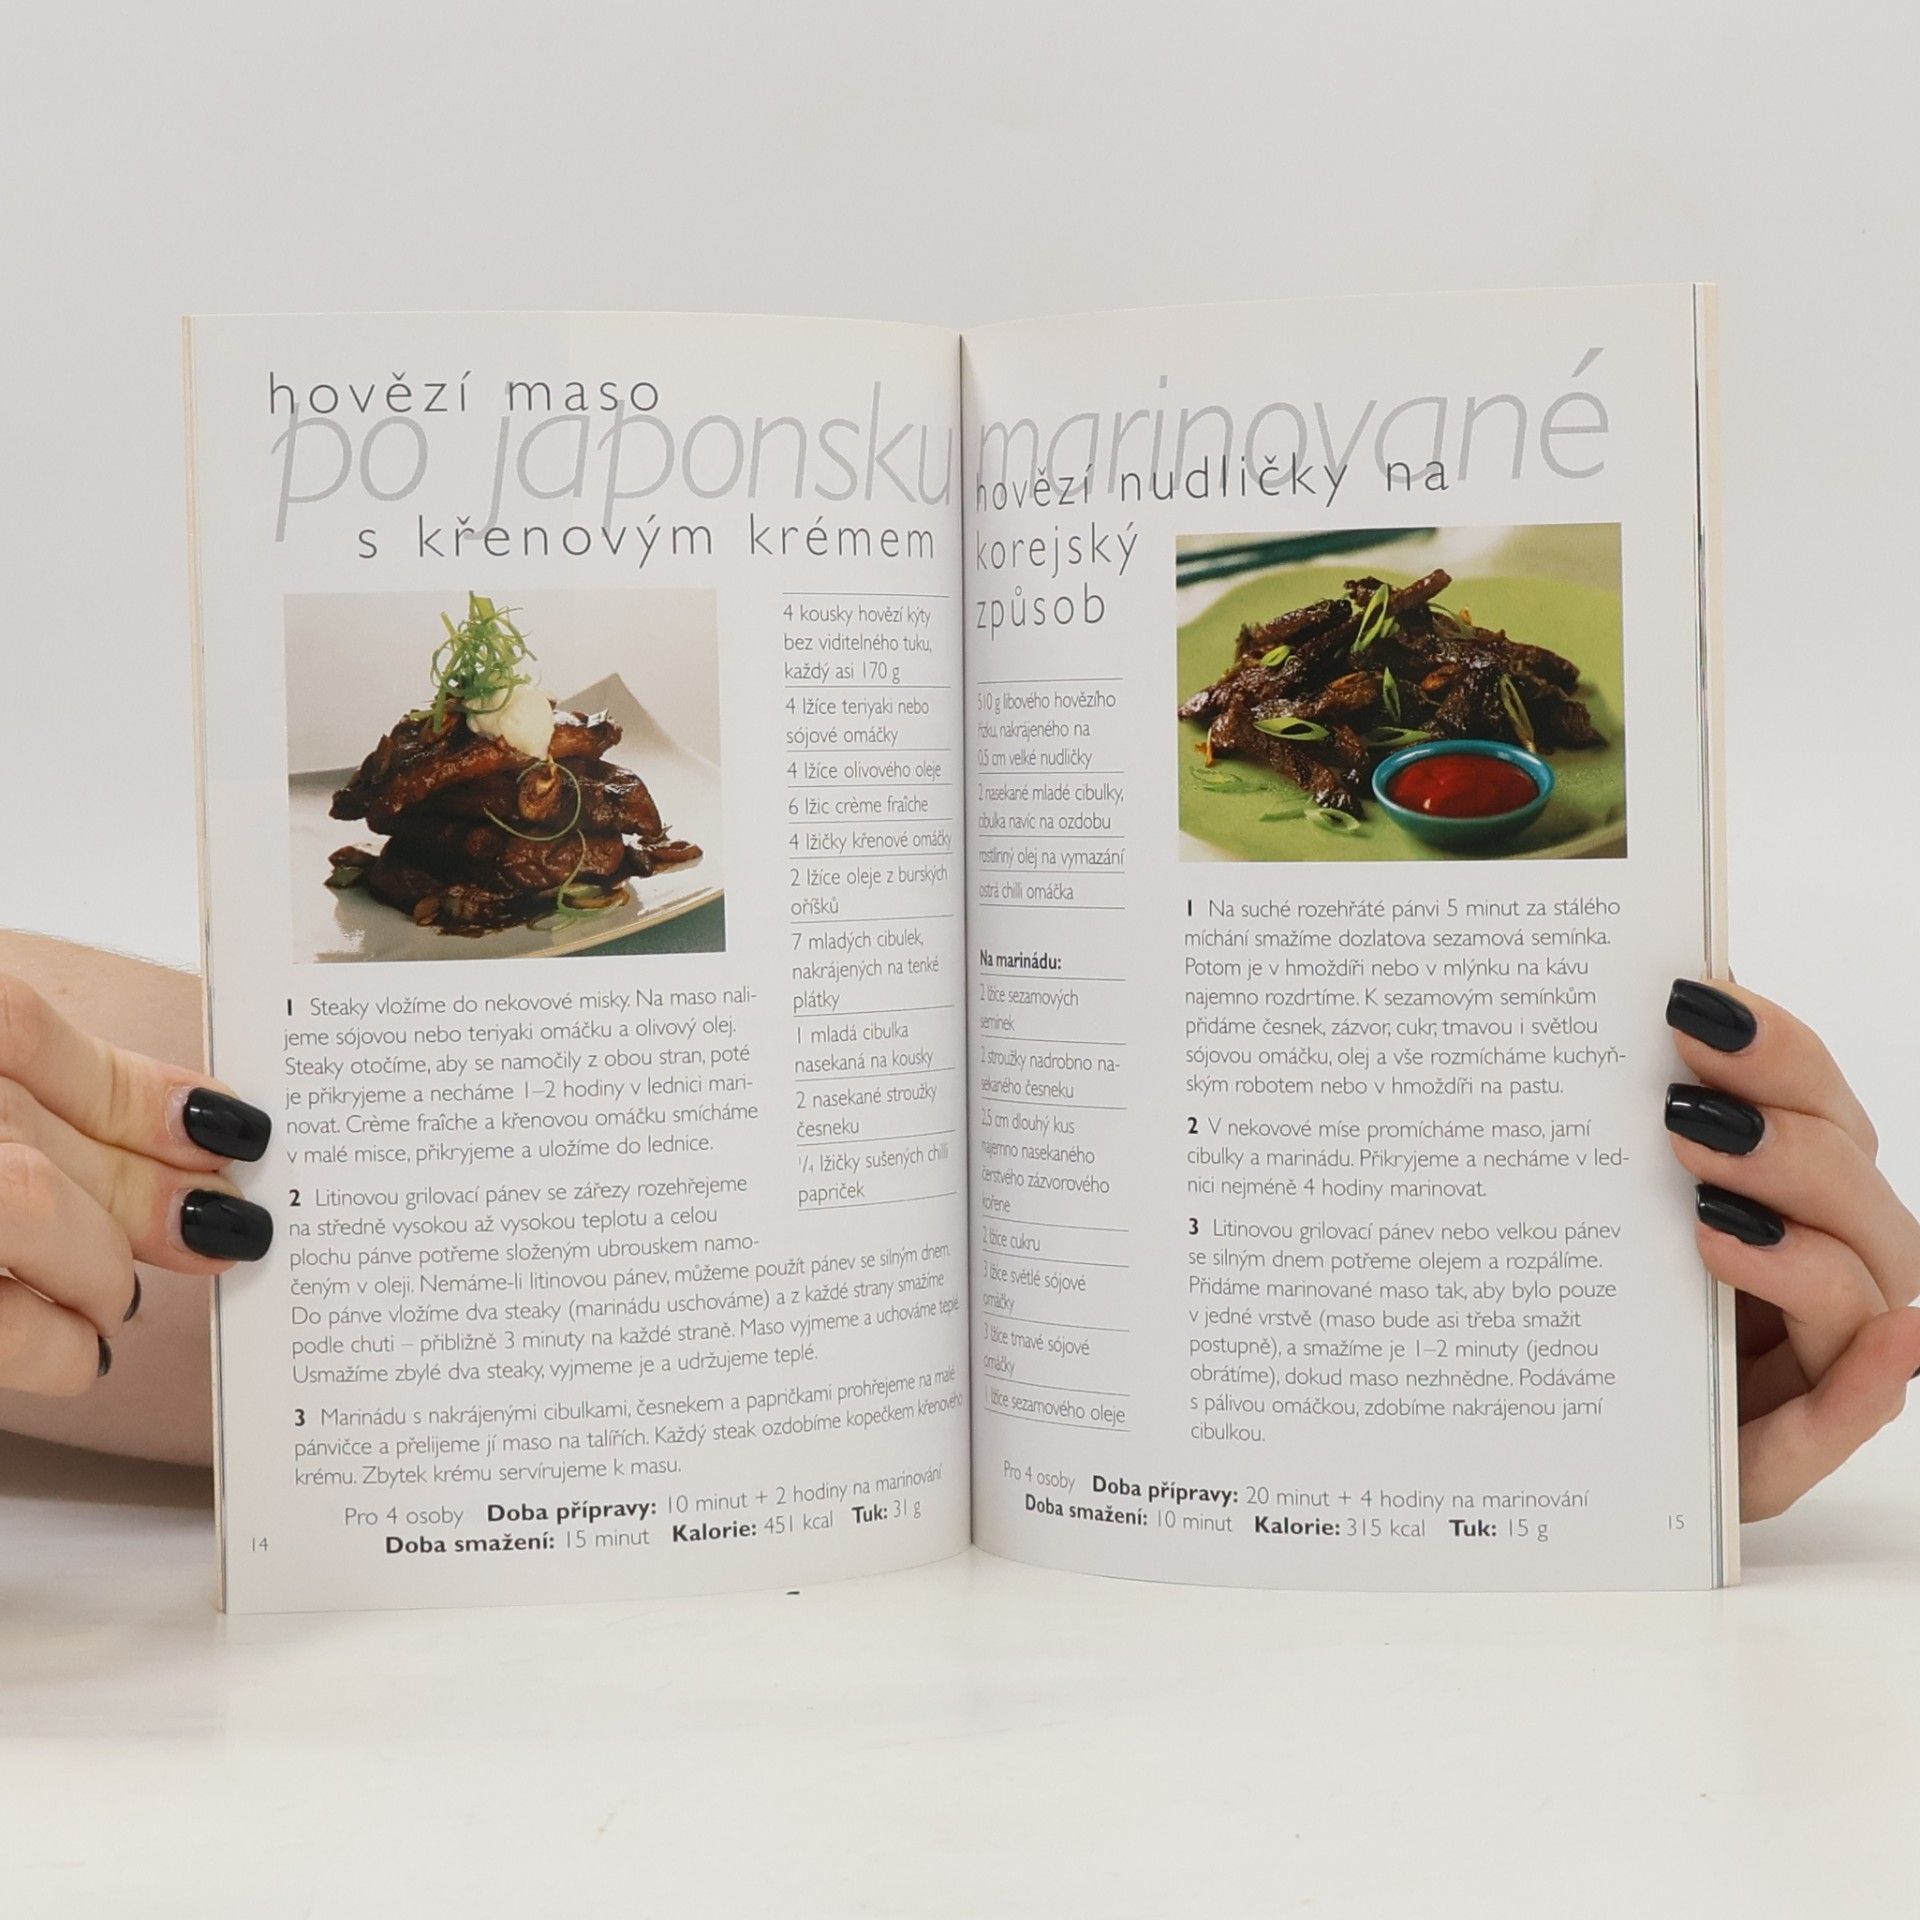 hovězí maso
po japonsku
s křenovým krémem
4 kousky hovězí kýty
bez viditelného tuku,
každý asi 170 g
4 lžíce teriyaki nebo
sójové omáčky
4 lžíce olivového oleje
6 lžic crème fraîche
4 lžičky křenové omáčky
2 lžíce oleje z burských
oříšků
7 mladých cibulek,
nakrájených na tenké
plátky
1 mladá cibulka
nasekaná na kousky
2 nasekané stroužky
česneku
1/4 lžičky sušených chilli
papriček
1 Steaky vložíme do nekovové misky. Na maso nali-
jeme sójovou nebo teriyaki omáčku a olivový olej.
Steaky otočíme, aby se namočily z obou stran, poté
je přikryjeme a necháme 1–2 hodiny v lednici mari-
novat. Crème fraîche a křenovou omáčku smícháme
v malé misce, přikryjeme a uložíme do lednice.
2 Litinovou grilovací pánev se zářezy rozehřejeme
na středně vysokou až vysokou teplotu a celou
plochu pánve potřeme složeným ubrouskem namo-
čeným v oleji. Nemáme-li litinovou pánev, můžeme použít pánev se silným dnem.
Do pánve vložíme dva steaky (marinádu uschováme) a z každé strany smažíme
podle chuti – přibližně 3 minuty na každé straně. Maso vyjmeme a uchováme teplé.
Usmažíme zbylé dva steaky, vyjmeme je a udržujeme teplé.
3 Marinádu s nakrájenými cibulkami, česnekem a papričkami prohřejeme na malé
pánvičce a přelijeme jí maso na talířích. Každý steak ozdobíme kopečkem křenového
krému. Zbytek krému servírujeme k masu.
Pro 4 osoby Doba přípravy: 10 minut + 2 hodiny na marinování
Doba smažení: 15 minut Kalorie: 451 kcal Tuk: 31 g
14
marinované
hovězí nudličky na
korejský
způsob
510 g libového hovězího
řízku, nakrájeného na
0,5 cm velké nudličky
2 nasekané mladé cibulky,
cibulka navíc na ozdobu
rostlinný olej na vymazání
ostrá chilli omáčka
Na marinádu:
2 lžíce sezamových
semínek
2 stroužky nadrobno na-
sekaného česneku
2,5 cm dlouhý kus
najemno nasekaného
čerstvého zázvorového
kořene
2 lžíce cukru
3 lžíce světlé sójové
omáčky
3 lžíce tmavé sójové
omáčky
1 lžíce sezamového oleje
1 Na suché rozehřáté pánvi 5 minut za stálého
míchání smažíme dozlatova sezamová semínka.
Potom je v hmoždíři nebo v mlýnku na kávu
najemno rozdrtíme. K sezamovým semínkům
přidáme česnek, zázvor, cukr, tmavou i světlou
sójovou omáčku, olej a vše rozmícháme kuchyň-
ským robotem nebo v hmoždíři na pastu.
2 V nekovové míse promícháme maso, jarní
cibulky a marinádu. Přikryjeme a necháme v led-
nici nejméně 4 hodiny marinovat.
3 Litinovou grilovací pánev nebo velkou pánev
se silným dnem potřeme olejem a rozpálíme.
Přidáme marinované maso tak, aby bylo pouze
v jedné vrstvě (maso bude asi třeba smažit
postupně), a smažíme je 1–2 minuty (jednou
obrátíme), dokud maso nezhnědne. Podáváme
s pálivou omáčkou, zdobíme nakrájenou jarní
cibulkou.
Pro 4 osoby Doba přípravy: 20 minut + 4 hodiny na marinování
Doba smažení: 10 minut Kalorie: 315 kcal Tuk: 15 g
15